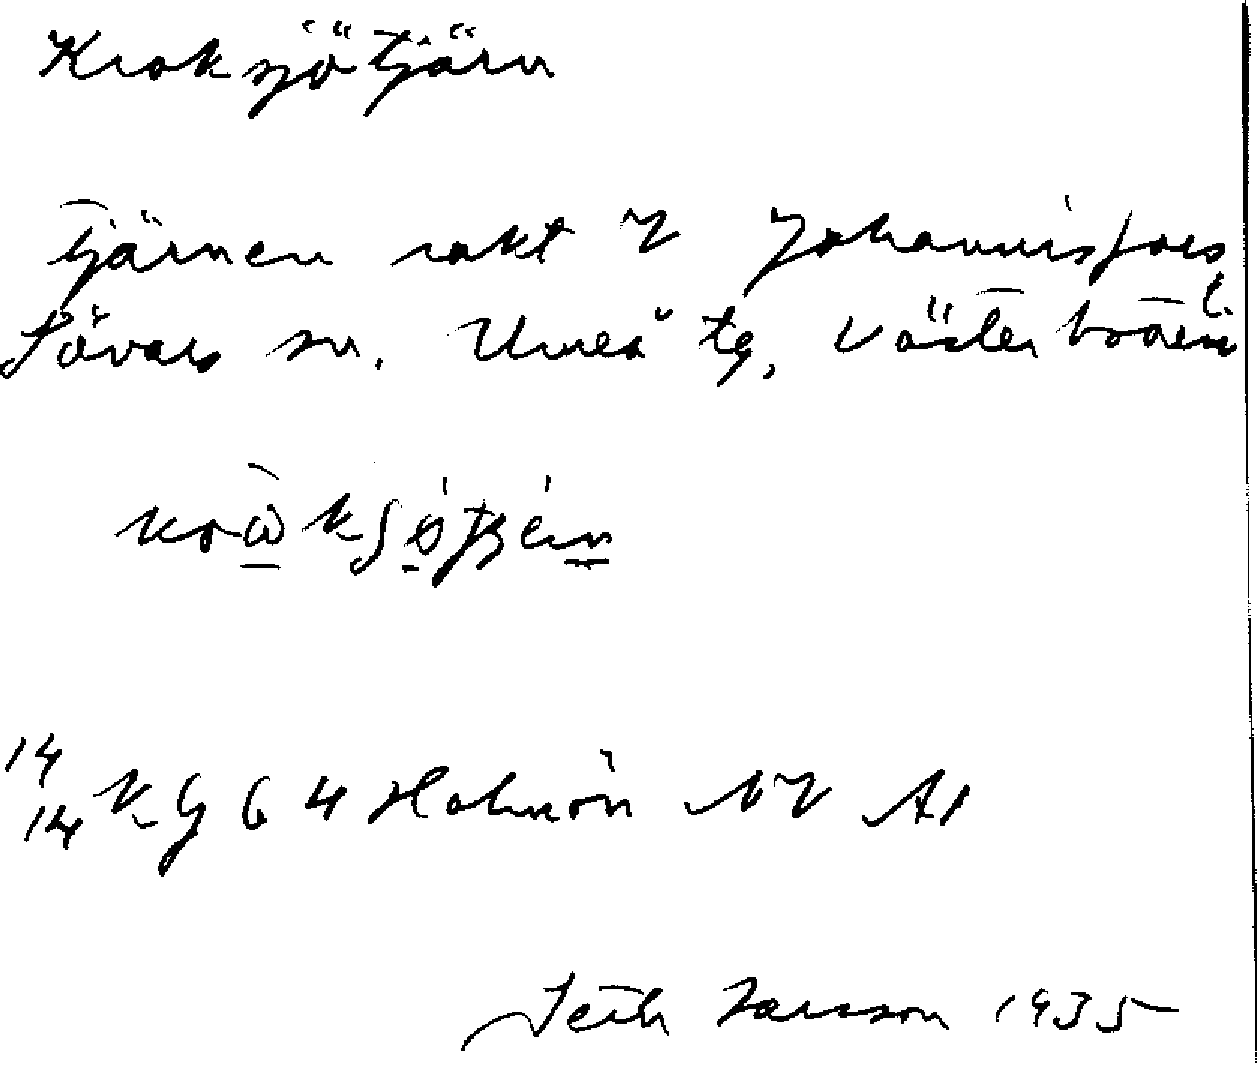 Kroksjötjärn
Tjärnen rakt V Johannisfors,
Sävars sn. Umeå tg, Västerbotten
14
14 K G 64 Holmön NV A1
Seth Larsson 1935